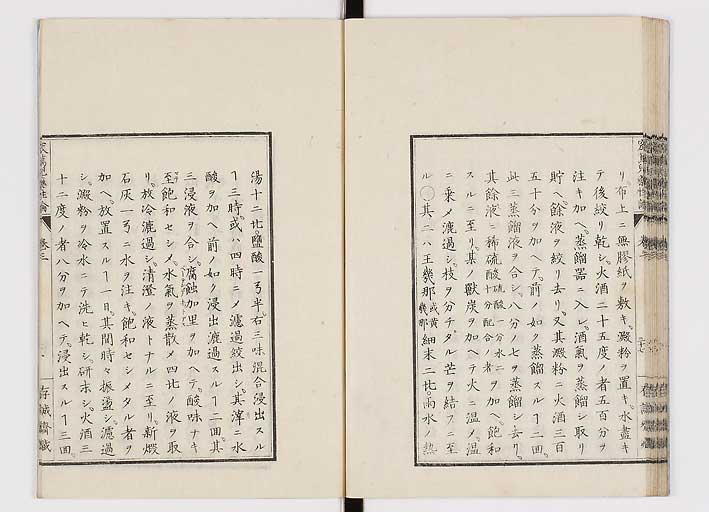 リ布上ニ無膠紙ヲ敷キ。澱粉ヲ置キ。水盡キ
テ後絞リ乾シ。火酒二十五度ノ者五百分ヲ
注キ加ヘ。蒸餾器ニ入レ。酒氣ヲ蒸餾シ取リ
貯ヘ。餘液ヲ絞リ去リ。又其澱粉ニ火酒三百
五十分ヲ加ヘテ。前ノ如ク蒸餾スルヿ二回。
此三蒸餾液ヲ合シ。八分ノ七ヲ蒸餾シ去リ。
其餘液ニ稀硫酸硫酸一分水二十分配合ノ者ヲ加ヘ。飽和
スルニ至リ。某ノ獸炭ヲ加ヘテ火ニ温メ。温
ニ乘メ漉過シ。枝ヲ分チタル芒ヲ結フニ至
ル○其二ハ王幾那或黄幾那細末二比。雨水ノ熱
湯十二比。鹽酸一弓半。右三味混合浸出スル
ヿ三時。或ハ四時ニメ濾過絞出シ。其滓ニ水
酸ヲ加ヘ前ノ如ク浸出漉過スルヿ二回。其
三浸液ヲ合シ。腐蝕加里ヲ加ヘテ。酸味ナキ
至飽和セシメ。水氣ヲ蒸散メ四比ノ液ヲ取
リ。放冷漉過シ。清澄ノ液トナルニ至リ。新煆
石灰一弓ニ水ヲ注キ。飽和セシメタル者ヲ
加ヘ。放置スルヿ一日。其間時々振盪シ。濾過
シ。澱粉ヲ冷水ニテ洗ヒ乾シ。研末シ。火酒三
十二度ノ者八分ヲ加ヘテ。浸出スルヿ三回。
卷三
存誠齋藏